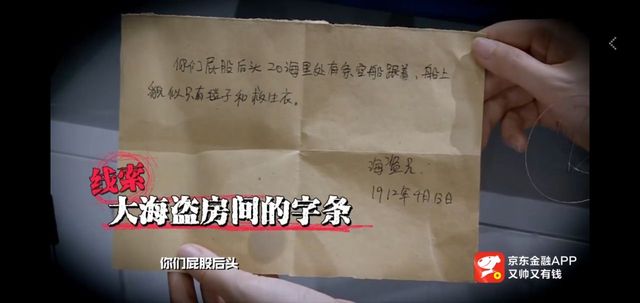 你们屁股后头20海里处有条空船跟着，船上
貌似只有毯子和救生衣。
海盗尤
1912年4月13日
线索
大海盗房间的字条
你们屁股后头
京东金融APP
又帅又有钱